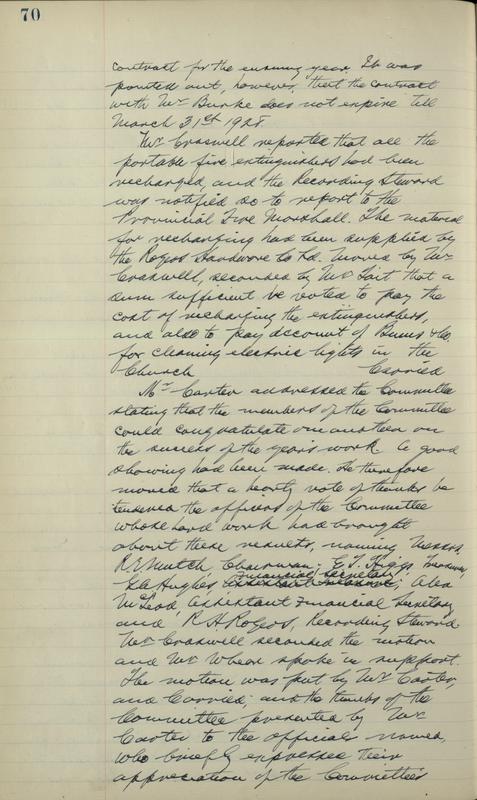 70
contract for the ensuing year. It was
pointed out, however, that the contract
with Mr Burke does not expire till
March 31st 1928.
Mr Craswell reported that all the
portable fire extinguishers had been
recharged, and the Recording Steward
was notified so to report to the
Provincial Fire Marshall. The material
for recharging had been supplied by
the Rogers Hardware Co Ltd. Moved by Mr
Craswell, seconded by Mr Tait that a
sum sufficient be voted to pay the
cost of recharging the extinguishers,
and also to pay account of Burns & Co.
for cleaning electric lights in the
Church Carried
Mr Carter addressed the Committee
stating that the members of the Committee
could congratulate one another on
the success of the years work. A good
showing had been made. He therefore
moved that a hearty vote of thanks be
tendered the officers of the Committee
whose hard work had brought
about these results, naming Messrs.
R E Mutch Chairman; E. T. Higgs,
Geo Hughes, Financial Secretary; Alex
McLeod, Assistant Financial Secretary
and R H Rogers, Recording Steward.
Mr Craswell seconded the motion
and Mr spoke in support.
The motion was put by Mr Carter,
and Carried; and the thanks of the
Committee presented by Mr
Carter to the officials named,
who briefly expressed their
appreciation of the Committee's